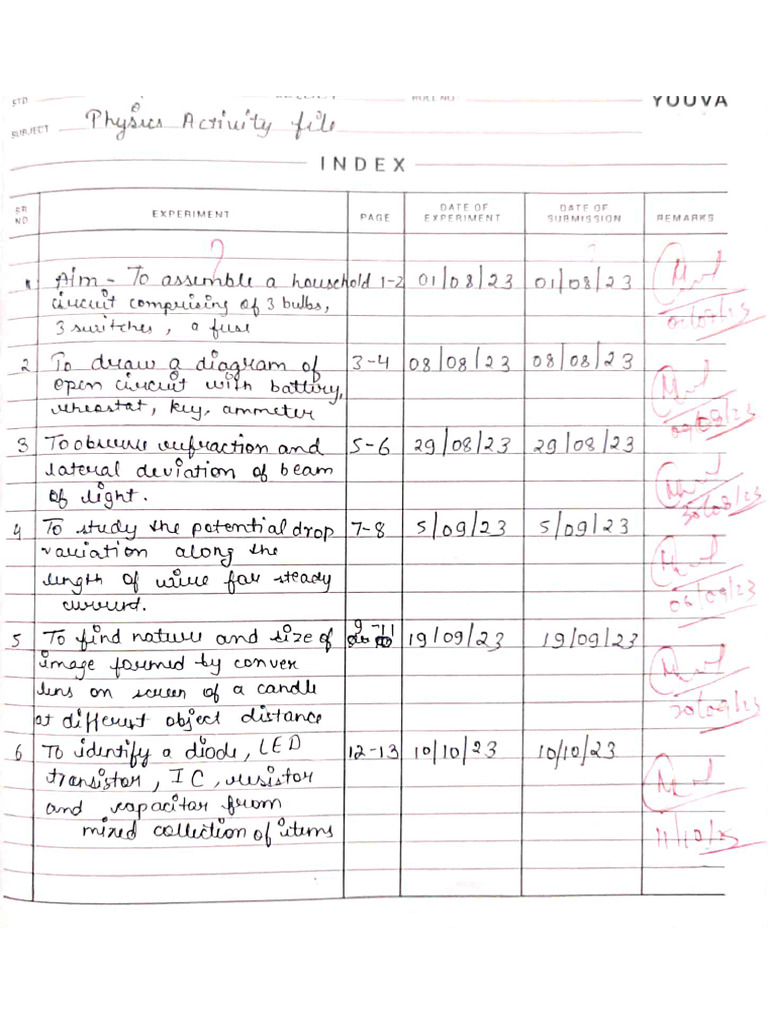 STD
ROLL NO
YOUVA
SUBJECT Physics Activity file
INDEX
SR NO EXPERIMENT PAGE DATE OF EXPERIMENT DATE OF SUBMISSION REMARKS
1 Aim - To assemble a household 1-2 01/08/23 01/08/23
circuit comprising of 3 bulbs,
3 switches, a fuse
2 To draw a diagram of 3-4 08/08/23 08/08/23
open circuit with battery,
rheostat, key, ammeter
09/08/23
3 To observe refraction and 5-6 29/08/23 29/08/23
lateral deviation of beam
of light.
30/08/23
4 To study the potential drop 7-8 5/09/23 5/09/23
variation along the
length of wire for steady
current.
06/09/23
5 To find nature and size of 9-11 19/09/23 19/09/23
image formed by conver
lens on screen of a candle
at different object distance
20/09/23
6 To identify a diode, LED 12-13 10/10/23 10/10/23
transistor, IC, resistor
and capacitor from
mixed collection of items